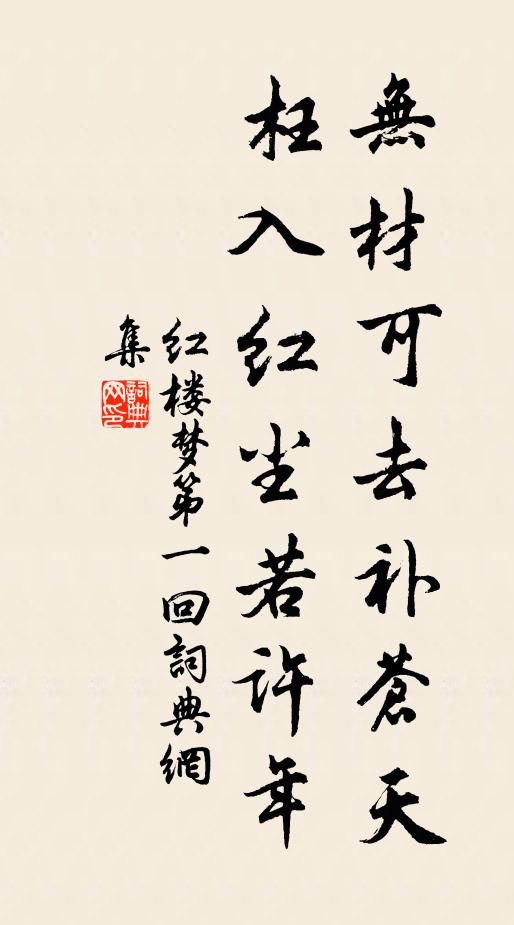 無材可去补蒼天
枉入红尘若许年
红楼梦第一回詞典網
集
詞典
网印